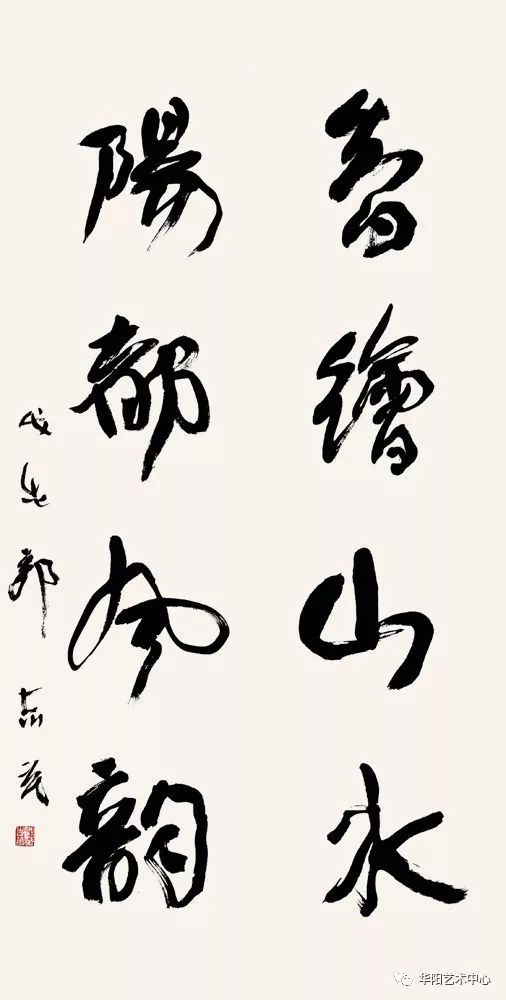 智繪山水
陽都風韻
戊戌郭志光
华阳艺术中心